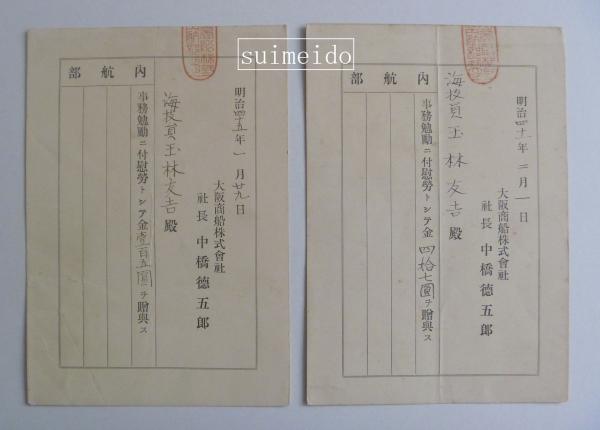 suimeido
明治四十一年二月一日
大阪商船株式會社
社長 中橋德五郎
海技員玉林友吉殿
事務勉勵ニ付慰勞トシテ金四拾七圓ヲ贈與ス
內航部
明治四十五年一月廿九日
大阪商船株式會社
社長 中橋德五郎
海技員玉林友吉殿
事務勉勵ニ付慰勞トシテ金壹百五圓ヲ贈與ス
內航部